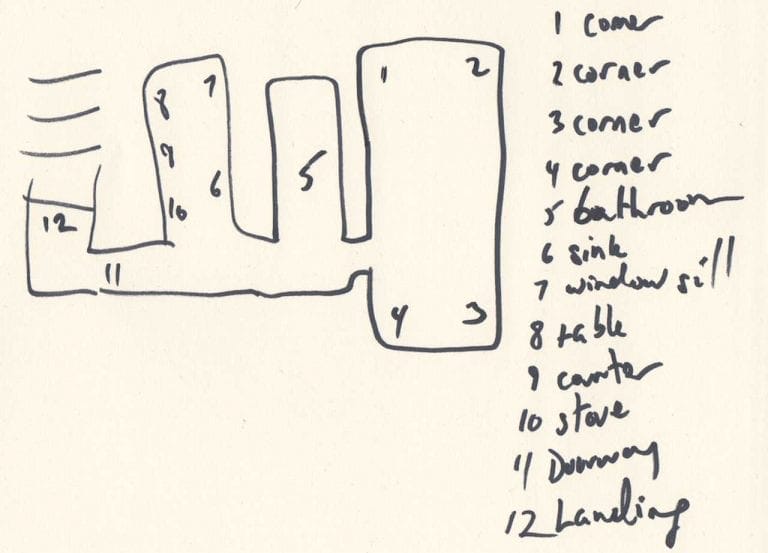 1 corner
2 corner
3 corner
4 corner
5 bathroom
6 sink
7 window sill
8 table
9 counter
10 stove
11 Doorway
12 Landing
1 2
8 7
9
6
10
5
12
11
4 3